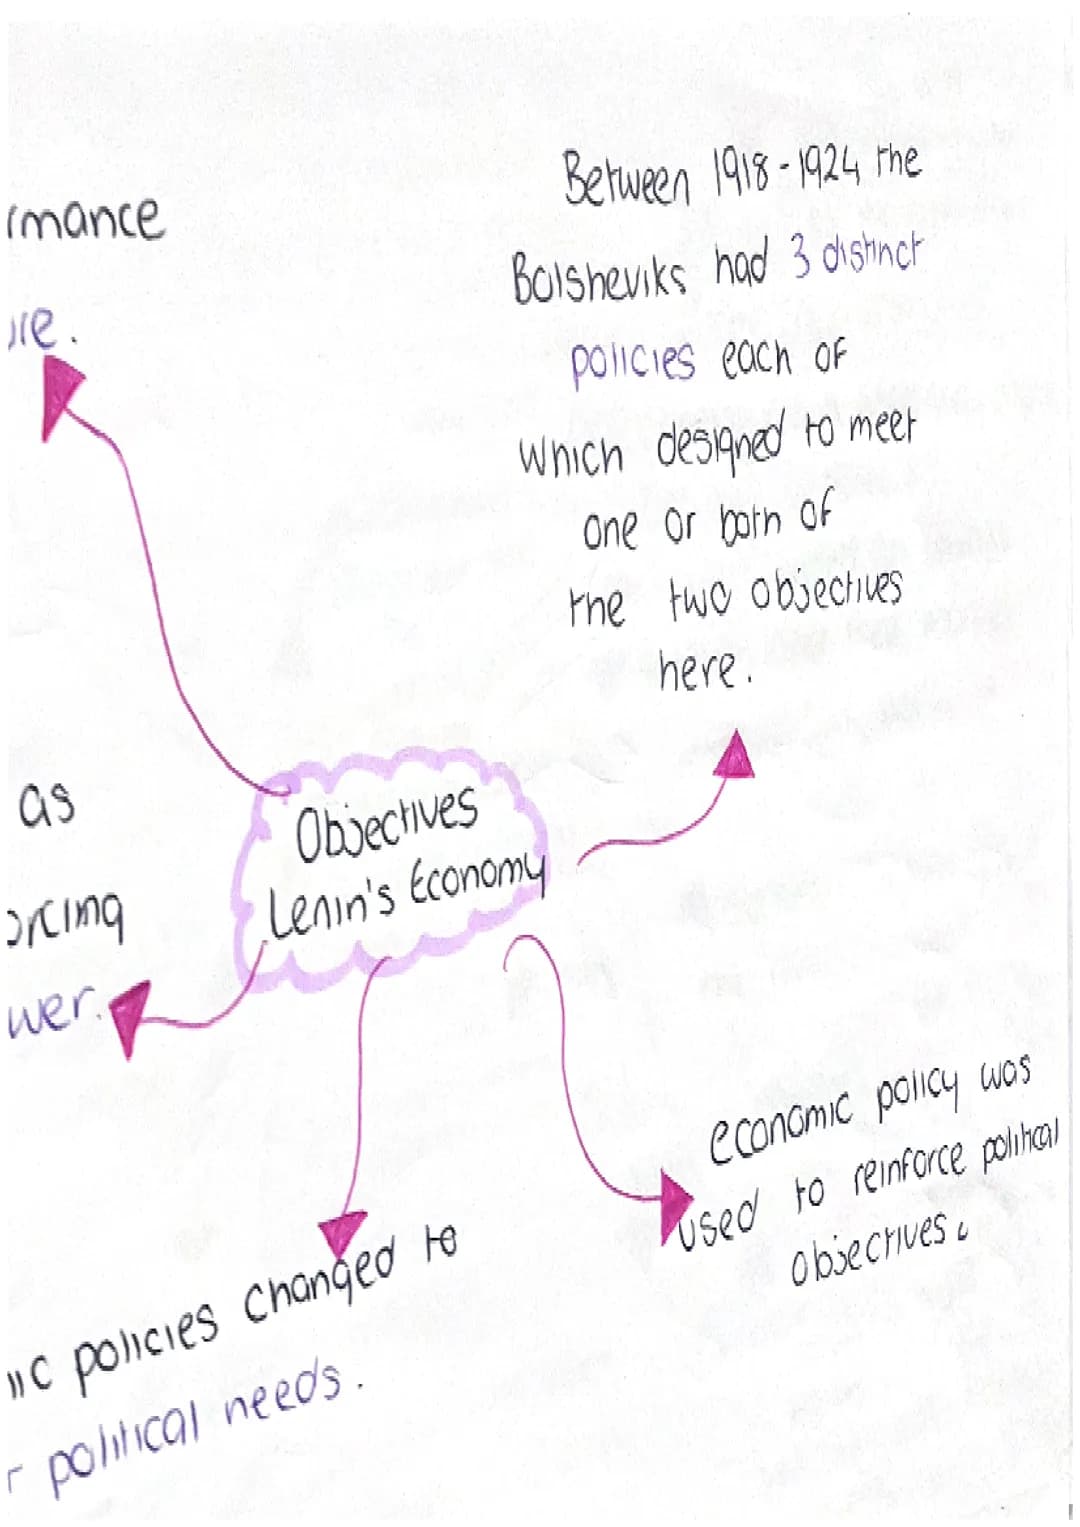 Between 1918-1924 the
Bolsheviks had 3 distinct
policies each of
which designed to meet
one or both of
the two objectives
here.
as
Objectives
Lenin's Economy
economic policy was
used to reinforce political
objectives.
policies changed to
political needs.